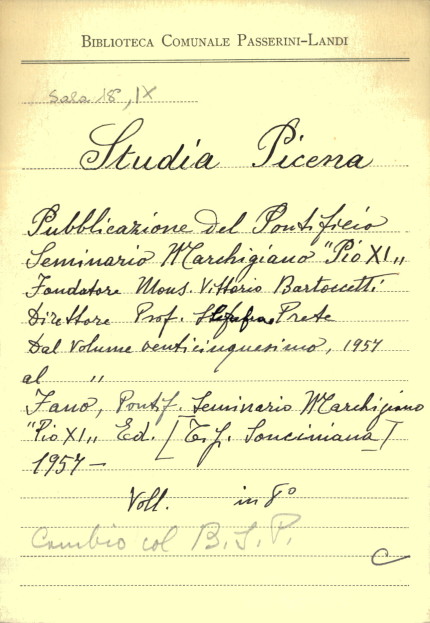 BIBLIOTECA COMUNALE PASSERINI-LANDI
Sala 18, IX
Studia Picena
Pubblicazione del Pontificio
Seminario Marchigiano "Pio XI"
Fondatore Mons. Vittorio Bartoccetti
Direttore Prof. Prete
Dal volume venticinquesimo, 1957
al "
Fano, Pontif. Seminario Marchigiano
"Pio XI" Ed. [T. g. Sonciniana]
1957 -
Voll. in 8°
Cambio col B. S. P.
C